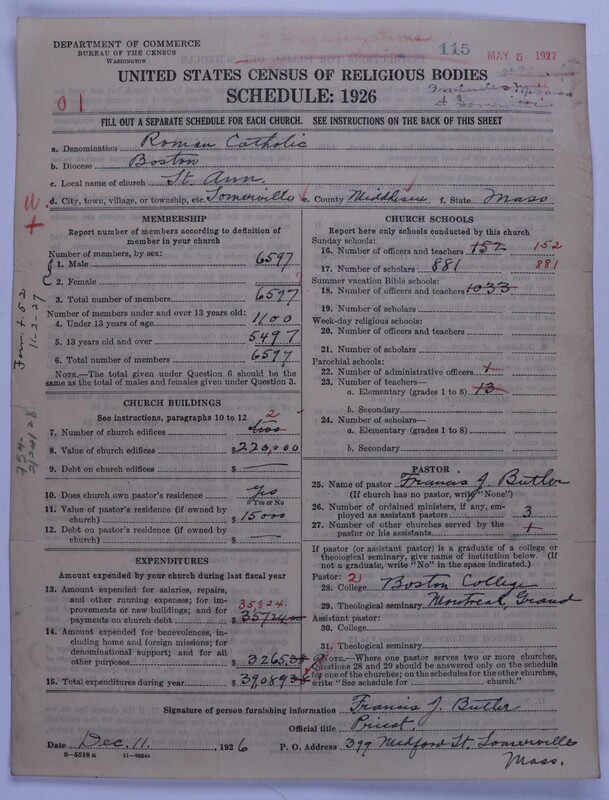 DEPARTMENT OF COMMERCE
BUREAU OF THE CENSUS
WASHINGTON
115
MAY 5 1927
UNITED STATES CENSUS OF RELIGIOUS BODIES
SCHEDULE: 1926
01
FILL OUT A SEPARATE SCHEDULE FOR EACH CHURCH. SEE INSTRUCTIONS ON THE BACK OF THIS SHEET
a. Denomination Roman Catholic
b. Diocese Boston
c. Local name of church St. Ann.
d. City, town, village, or township, etc. Somerville e. County Middlesex f. State Mass
MEMBERSHIP
Report number of members according to definition of
member in your church
Number of members, by sex:
1. Male 6597
2. Female
3. Total number of members 6597
Number of members under and over 13 years old:
4. Under 13 years of age 1100
5. 13 years old and over 5497
6. Total number of members 6597
NOTE.—The total given under Question 6 should be the
same as the total of males and females given under Question 3.
CHURCH BUILDINGS
See instructions, paragraphs 10 to 12
7. Number of church edifices 2
8. Value of church edifices $220,000
9. Debt on church edifices $ —
10. Does church own pastor's residence Yes
Yes or No
11. Value of pastor's residence (if owned by
church) $15000
12. Debt on pastor's residence (if owned by
church) $ —
EXPENDITURES
Amount expended by your church during last fiscal year
13. Amount expended for salaries, repairs,
and other running expenses; for im-
provements or new buildings; and for
payments on church debt $35,824.
14. Amount expended for benevolences, in-
cluding home and foreign missions; for
denominational support; and for all
other purposes $3265.
15. Total expenditures during year $39089
CHURCH SCHOOLS
Report here only schools conducted by this church
Sunday schools:
16. Number of officers and teachers 152 152
17. Number of scholars 881 881
Summer vacation Bible schools:
18. Number of officers and teachers 1033
19. Number of scholars
Week-day religious schools:
20. Number of officers and teachers
21. Number of scholars
Parochial schools:
22. Number of administrative officers 1
23. Number of teachers—
a. Elementary (grades 1 to 8) 13
b. Secondary
24. Number of scholars—
a. Elementary (grades 1 to 8)
b. Secondary
PASTOR
25. Name of pastor Francis J. Butler
(If church has no pastor, write "None")
26. Number of ordained ministers, if any, em-
ployed as assistant pastors 3
27. Number of other churches served by the
pastor or his assistants 1
If pastor (or assistant pastor) is a graduate of a college or
theological seminary, give name of institution below. (If
not a graduate, write "No" in the space indicated.)
Pastor: 2
28. College Boston College
29. Theological seminary Montreal, Grand
Assistant pastor:
30. College
31. Theological seminary
NOTE.—Where one pastor serves two or more churches,
Questions 28 and 29 should be answered only on the schedule
for one of the churches; on the schedules for the other churches,
write "See schedule for church."
Signature of person furnishing information Francis J. Butler
Official title Priest.
Date Dec. 11, 1926 P. O. Address 399 Medford St. Somerville
Mass.
8-5518 a